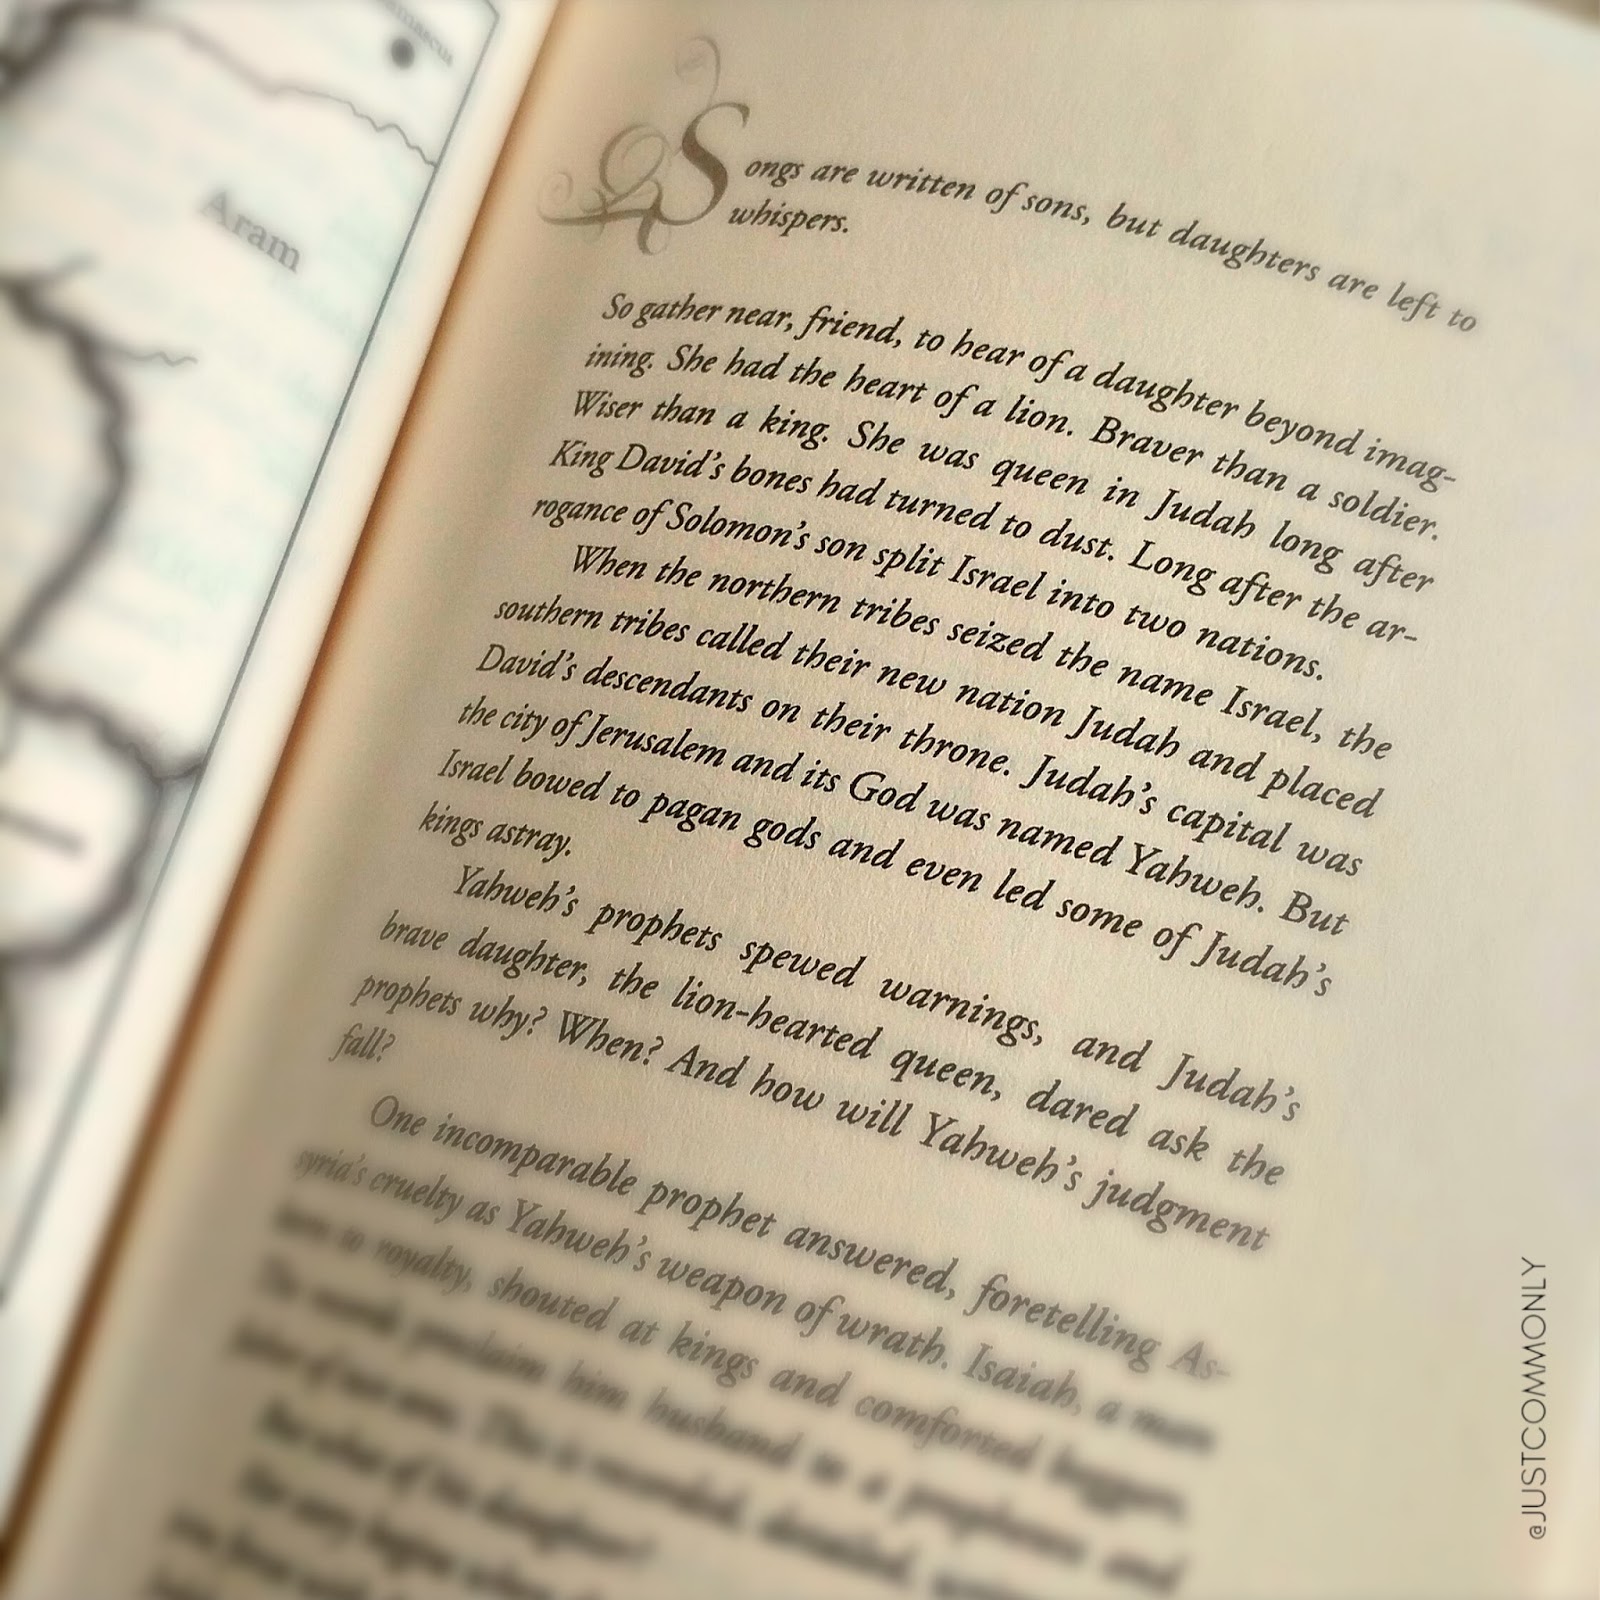 Damascus
Aram
Songs are written of sons, but daughters are left to
whispers.
So gather near, friend, to hear of a daughter beyond imag-
ining. She had the heart of a lion. Braver than a soldier.
Wiser than a king. She was queen in Judah long after
King David's bones had turned to dust. Long after the ar-
rogance of Solomon's son split Israel into two nations.
When the northern tribes seized the name Israel, the
southern tribes called their new nation Judah and placed
David's descendants on their throne. Judah's capital was
the city of Jerusalem and its God was named Yahweh. But
Israel bowed to pagan gods and even led some of Judah's
kings astray.
Yahweh's prophets spewed warnings, and Judah's
brave daughter, the lion-hearted queen, dared ask the
prophets why? When? And how will Yahweh's judgment
fall?
One incomparable prophet answered, foretelling As-
syria's cruelty as Yahweh's weapon of wrath. Isaiah, a man
born to royalty, shouted at kings and comforted beggars.
proclaim him husband to a prophetess and
This is recorded, detailed,
But what of his daughter?
@JUSTCOMMONLY